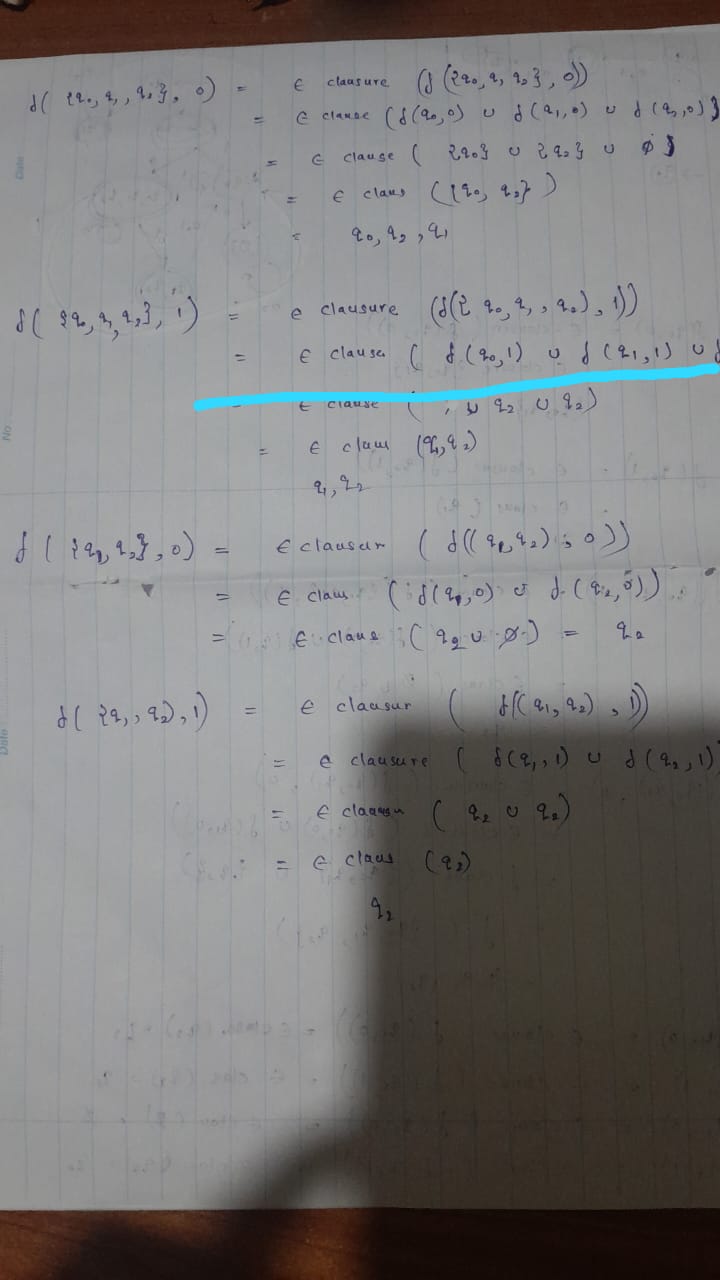 δ( {q₀, q₁, q₂}, 0) = ε clausure (δ({q₀, q₁, q₂}, 0))
= ε clause (δ(q₀,0) ∪ δ(q₁,0) ∪ δ(q₂,0)}
= ε clause ( {q₀} ∪ {q₂} ∪ ø}
= ε claus ({q₀, q₂})
= q₀, q₂, q₁
δ( {q₀, q₁, q₂}, 1) = e clausure (δ({ q₀, q₁, q₂), 1))
= ε clause ( δ(q₀,1) ∪ δ(q₁,1) ∪ δ
= ε clause ( ∪ q₂ ∪ q₂)
= ε claus (q₁,q₂)
q₁, q₂
δ( {q₁, q₂}, 0) = ε clausur ( δ((q₁,q₂), 0))
= ε claus (δ(q₁,0) ∪ δ(q₂,0))
= ε claus ( q₂ ∪ ø ) = q₂
δ( {q₁, q₂), 1) = ε clausur ( δ((q₁, q₂), 1))
= e clausure ( δ(q₁, 1) ∪ δ(q₂, 1)
= ε ( q₂ ∪ q₂)
= ε claus (q₂)
q₂
Date
No
Date